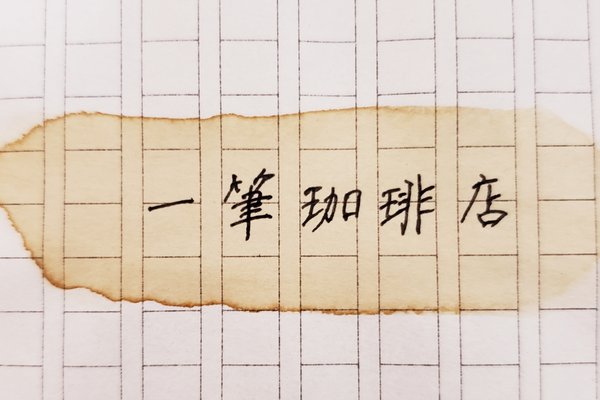 一筆珈琲店